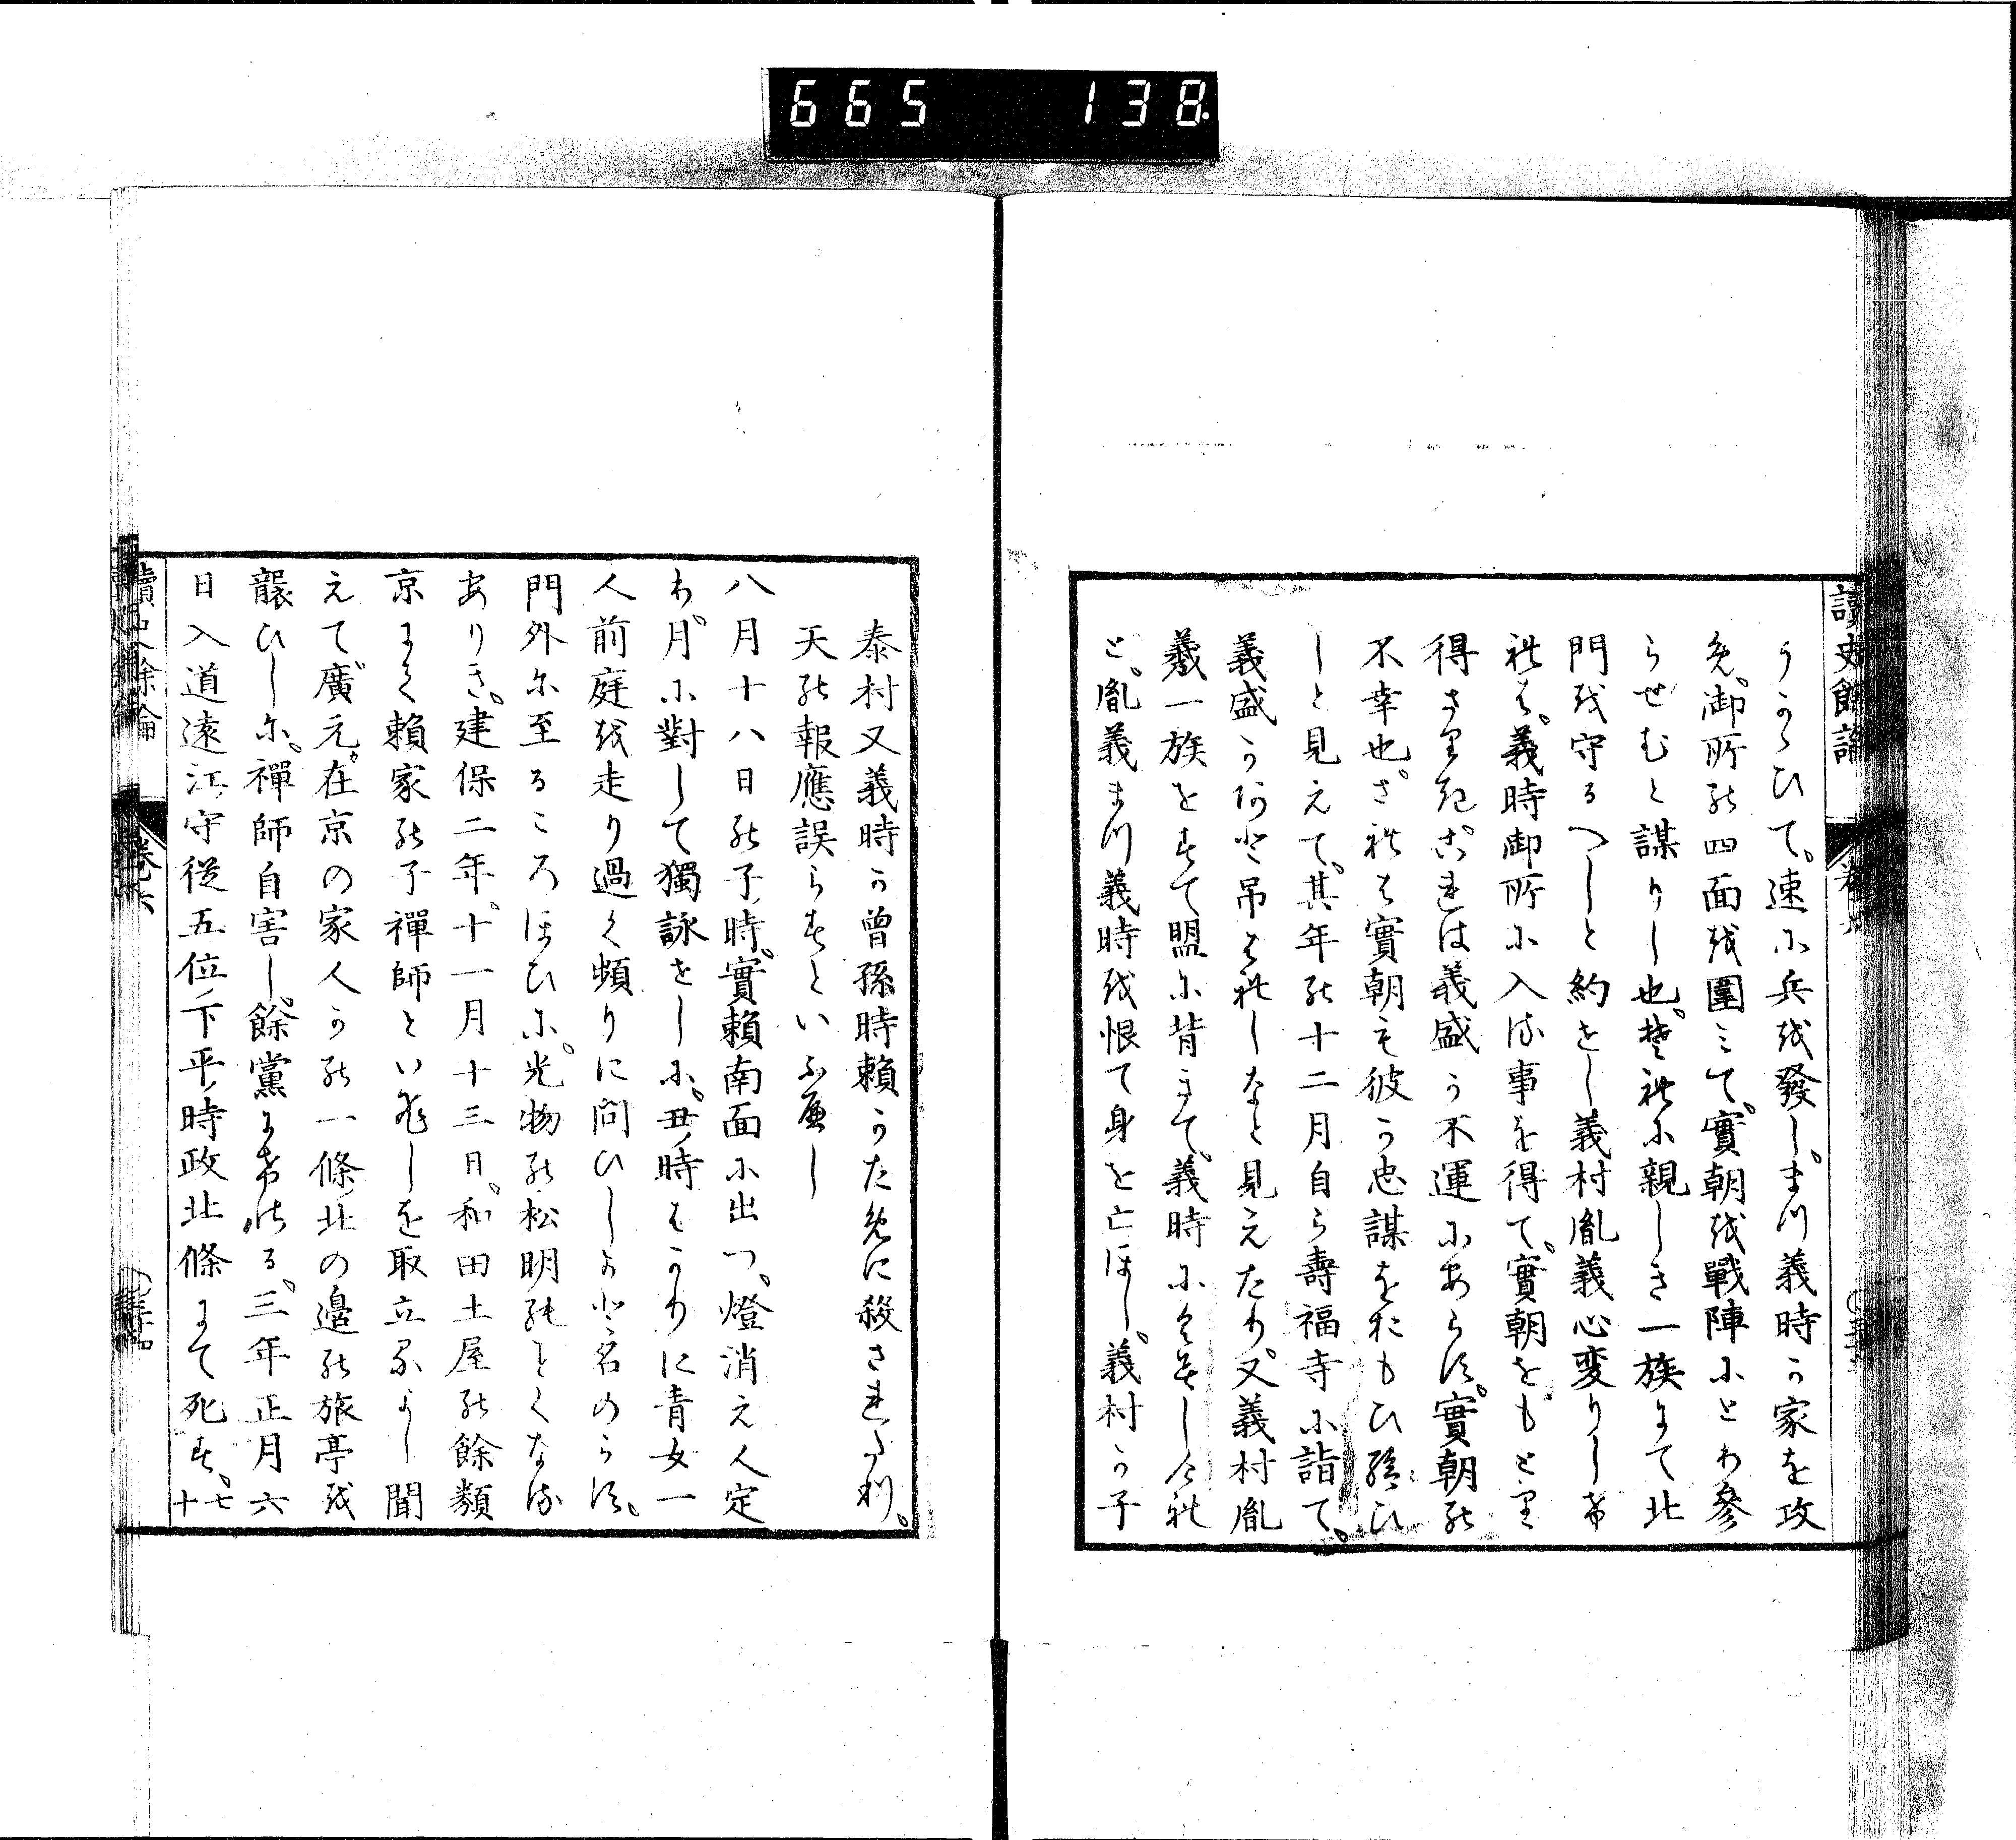 665 138
讀史餘論 卷六
うかゝひて。速に兵を發し。まづ義時か家を攻
免。御所能四面越圍ミて。實朝越戰陣にとり參
らせむと謀りし也。それに親しき一族にて北
門越守るへしと約せし義村胤義心変りしけ
れは。義時御所に入る事を得て。實朝をもとり
得さりき。されは義盛か不運にあらす。實朝能
不幸也。されは實朝も彼か忠謀をおもひ給ひ
しと見えて。其年能十二月自ら壽福寺に詣て。
義盛か阿と吊はれしなと見えたり。又義村胤
義一族をすて盟に背きて。義時にくみし
と。胤義まづ義時越恨て身を亡ほし。義村か子
泰村又義時か曾孫時頼かために殺されたり。
天能報應誤らすといふ遍し
八月十八日能子ノ時。實頼南面に出つ。燈消え人定
り。月に對して獨詠をしに。丑ノ時はかりに青女一
人前庭越走り過く頻りに問ひしかと名のらす。
門外に至るころほひに。光物能松明能ことくなる
ありき。建保二年。十一月十三日。和田土屋能餘類
京にて頼家能子禪師といひしを取立るよし聞
えて廣元。在京の家人か能一條ノ北の邊能旅亭越
襲ひしに。禪師自害し。餘黨にけ行る。三年正月六
日入道遠江ノ守従五位ノ下平ノ時政北條にて死す。七十
讀史餘論 卷六